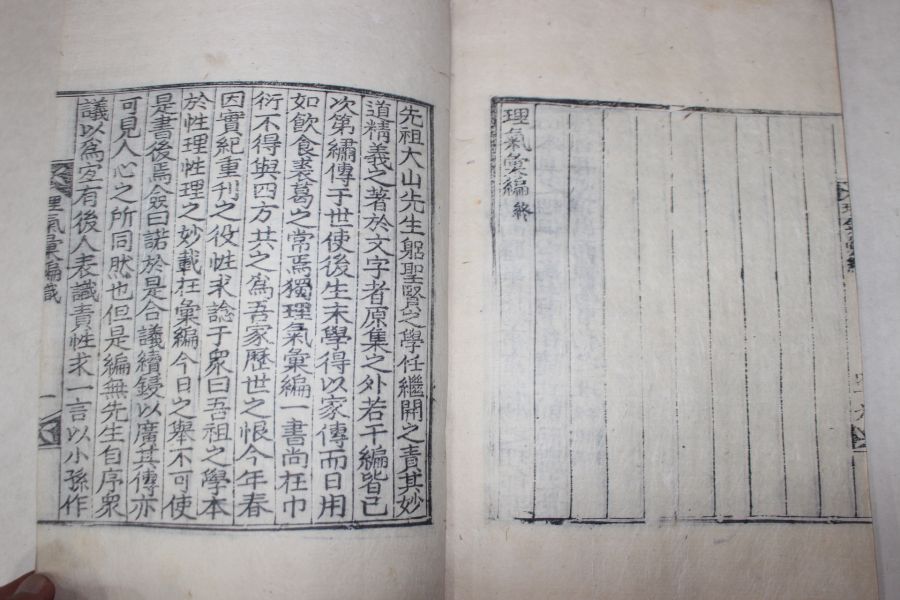 理氣彙編 終
先祖大山先生躬聖賢之學任繼開之責其妙
道精義之著於文字者原集之外若干編皆已
次第繡傳于世使後生末學得以家傳而日用
如飲食裘葛之常焉獨理氣彙編一書尚在巾
衍不得與四方共之為吾家歷世之恨今年春
因實紀重刊之役性求諗于眾曰吾祖之學本
於性理性理之妙載在彙編今日之舉不可使
是書後焉僉曰諾於是合議續鋟以廣其傳亦
可見人心之所同然也但是編無先生自序眾
議以為宜有後人表識責性求一言以小孫作
理氣彙編識
一